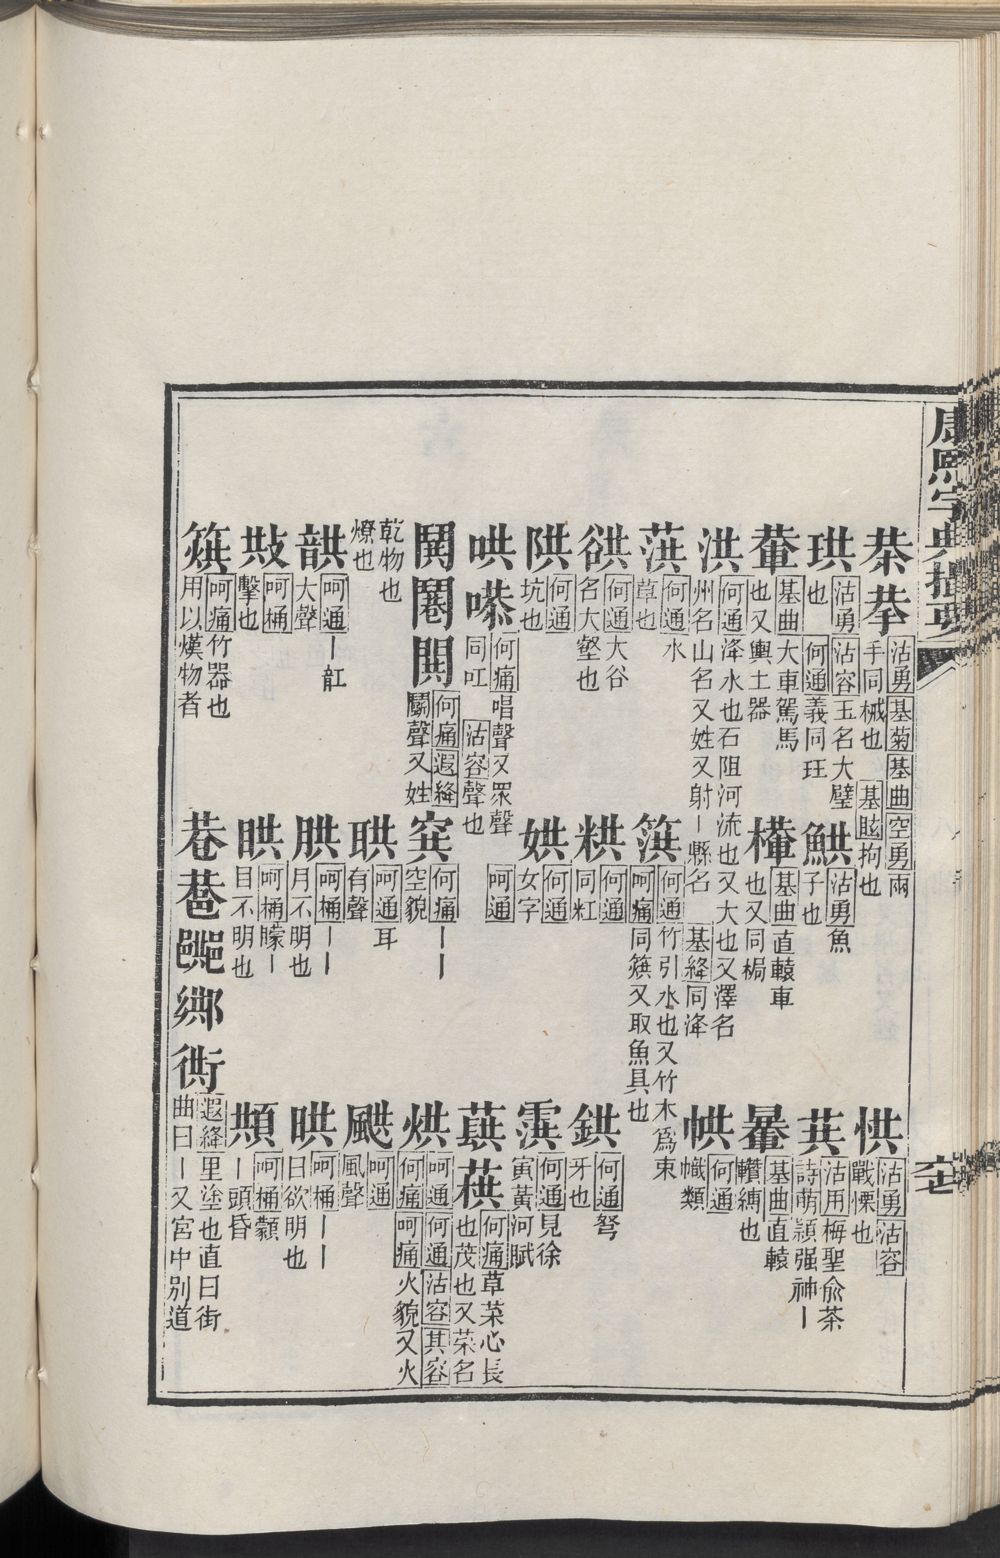 康熙字典撮要
拲 沽勇 基菊 基曲 空勇 兩手同械也 拘也
沽勇 沽容 戰慄也
珙 沽勇 沽容 玉名大璧也 何通 義同玒
沽勇 魚子也
沽用 梅聖俞茶詩萌穎强神丨
輂 基曲 大車駕馬也又輿土器
基曲 直轅車也又同梮
基曲 直轅縛也
洪 何通 洚水也石阻河流也又大也又澤名州名山名又姓又射丨縣名 基絳 同洚
何通 幟類
葓 何通 水草也
篊 何通 竹引水也又竹木爲束 呵痛 同又取魚具也
谼 何通 大谷名大壑也
粠 何通 同紅
鉷 何通 弩牙也
何通 坑也
娂 何通 女字
霟 何通 見徐寅黃河賦
哄 何痛 唱聲又眾聲同 沽容 聲也 呵通
蕻 何痛 草菜心長也茂也又菜名
鬨閧 何痛 遐絳 鬭聲又姓
何痛 丨丨空貌
烘 呵通 何通 沽容 其容 何痛 呵痛 火貌又火乾物也燎也
呵通 耳有聲
呵通 風聲
呵通 丨大聲
呵桶 丨丨月不明也
晎 呵桶 丨丨日欲明也
呵桶 擊也
呵桶 矇丨目不明也
呵桶 丨頭昏
呵痛 竹器也用以熯物者
巷 遐絳 里塗也直曰街曲曰丨又宮中別道